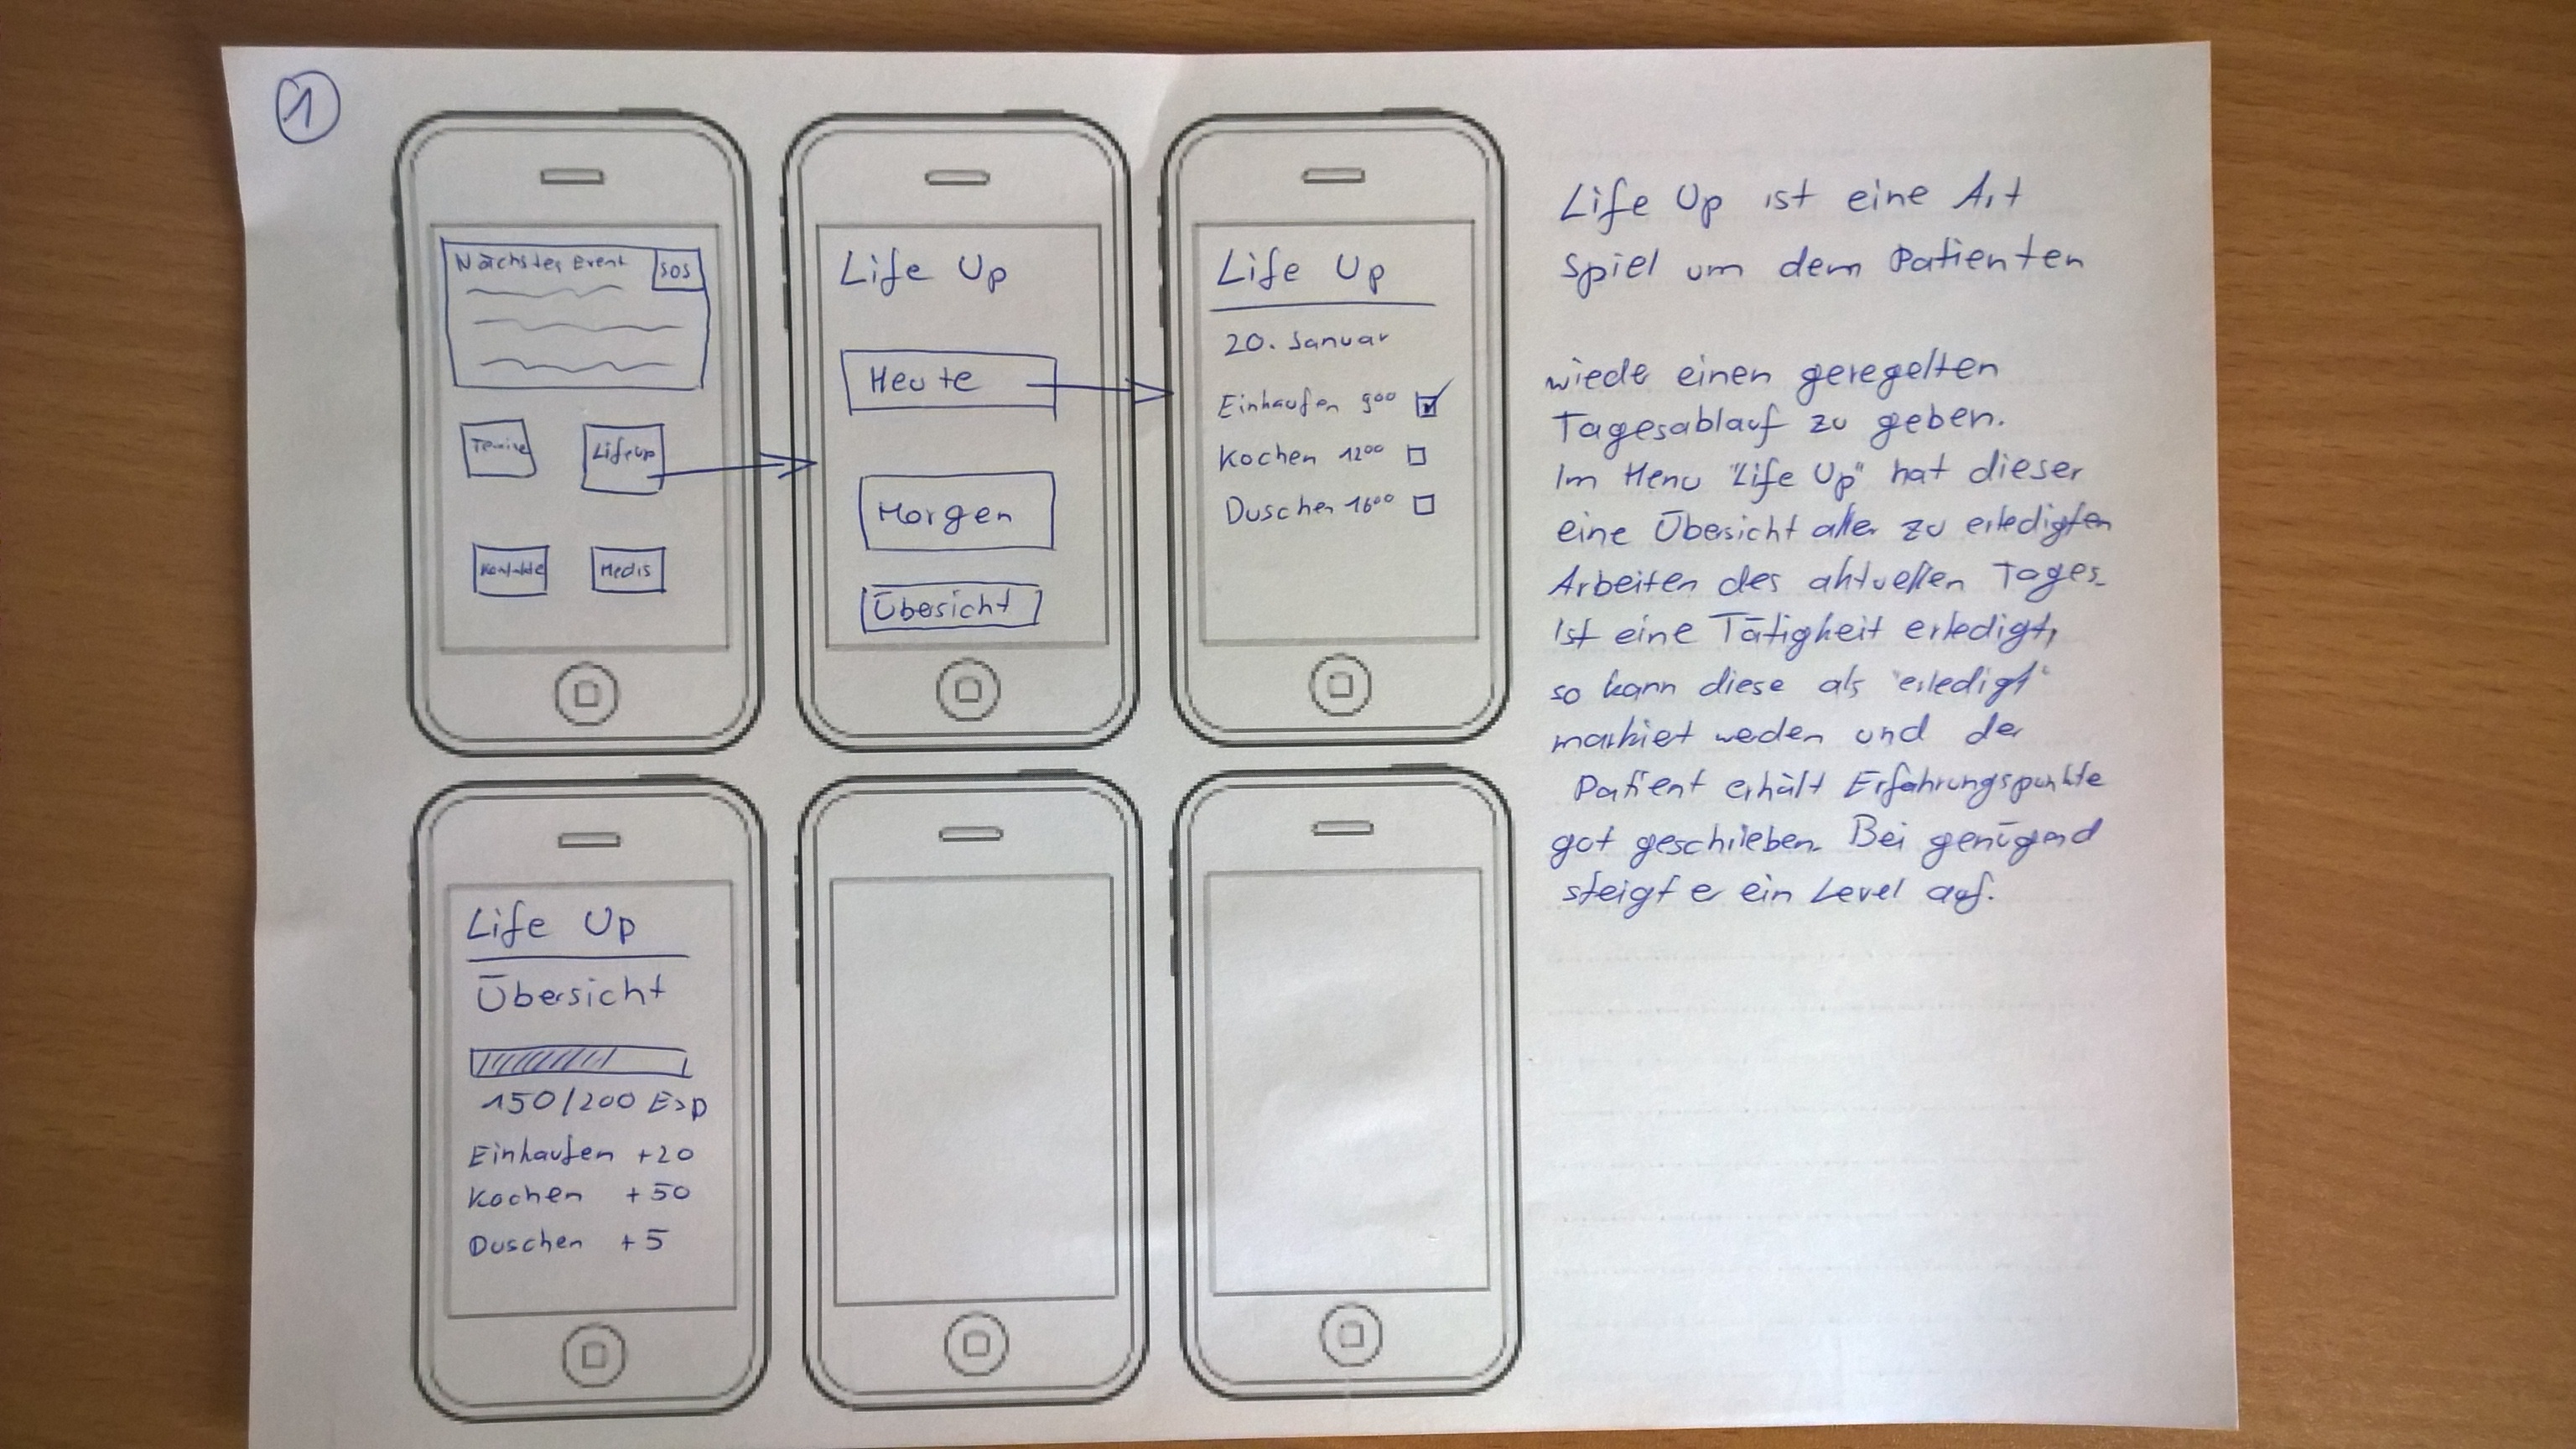 1
Nächster Event SOS
Termine LifeUp
Kontakte Medis
Life Up
Heute
Morgen
Übersicht
Life Up
20. Januar
Einkaufen 9⁰⁰
Kochen 12⁰⁰
Duschen 16⁰⁰
Life Up
Übersicht
150/200 Exp
Einkaufen +20
Kochen +50
Duschen +5
Life Up ist eine Art
Spiel um dem Patienten
wieder einen geregelten
Tagesablauf zu geben.
Im Menu "Life Up" hat dieser
eine Übersicht aller zu erledigten
Arbeiten des aktuellen Tages.
Ist eine Tätigkeit erledigt,
so kann diese als "erledigt"
markiert werden und der
Patient erhält Erfahrungspunkte
gut geschrieben. Bei genügend
steigt er ein Level auf.